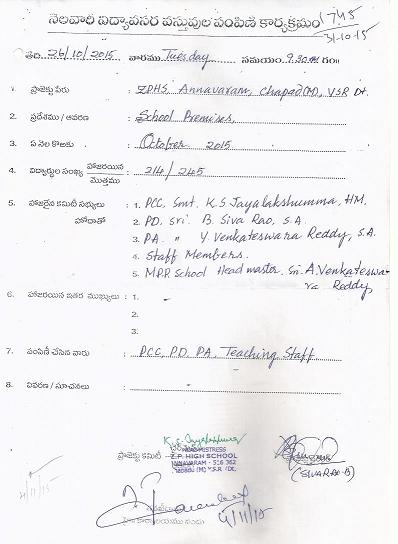 నెలవారి విద్యావసర వస్తువుల పంపిణి కార్యక్రమం
1745
31-10-15
తేది. 26/10/2015 వారము Tuesday సమయం. 9.30 గం॥
1. ప్రాజెక్టు పేరు : ZPHS, Annavaram, Chapad(M), YSR Dt.
2. ప్రదేశము / ఆవరణ : School Premises,
3. ఏ నెల కొలకు : October 2015
4. విద్యార్థుల సంఖ్య హాజరయిన / మొత్తము : 214/245
5. హాజరైన కమిటీ సభ్యులు : 1. PCC, Smt. K.S. Jayalakshumma, HM.
హోదాతో 2. PD. Sri. B. Siva Rao, S.A.
3. PA. " Y. Venkateswara Reddy, S.A.
4. Staff Members.
5. M.P.P. School Head master. Sri. A. Venkateswa-
ra Reddy,
6. హాజరయిన ఇతర ముఖ్యులు : 1. -
2.
3.
7. పంపిణీ చేసిన వారు : PCC, PD, PA, Teaching Staff
8. వివరణ / సూచనలు : -
K.S. Jayalakshumma
ప్రాజెక్టు కమిటీ
HEAD MISTRESS
Z.P. HIGH SCHOOL
ANNAVARAM - 516 362
(M) Y.S.R. Dt.
(SIVARAO-B)
4/11/15
4/11/15